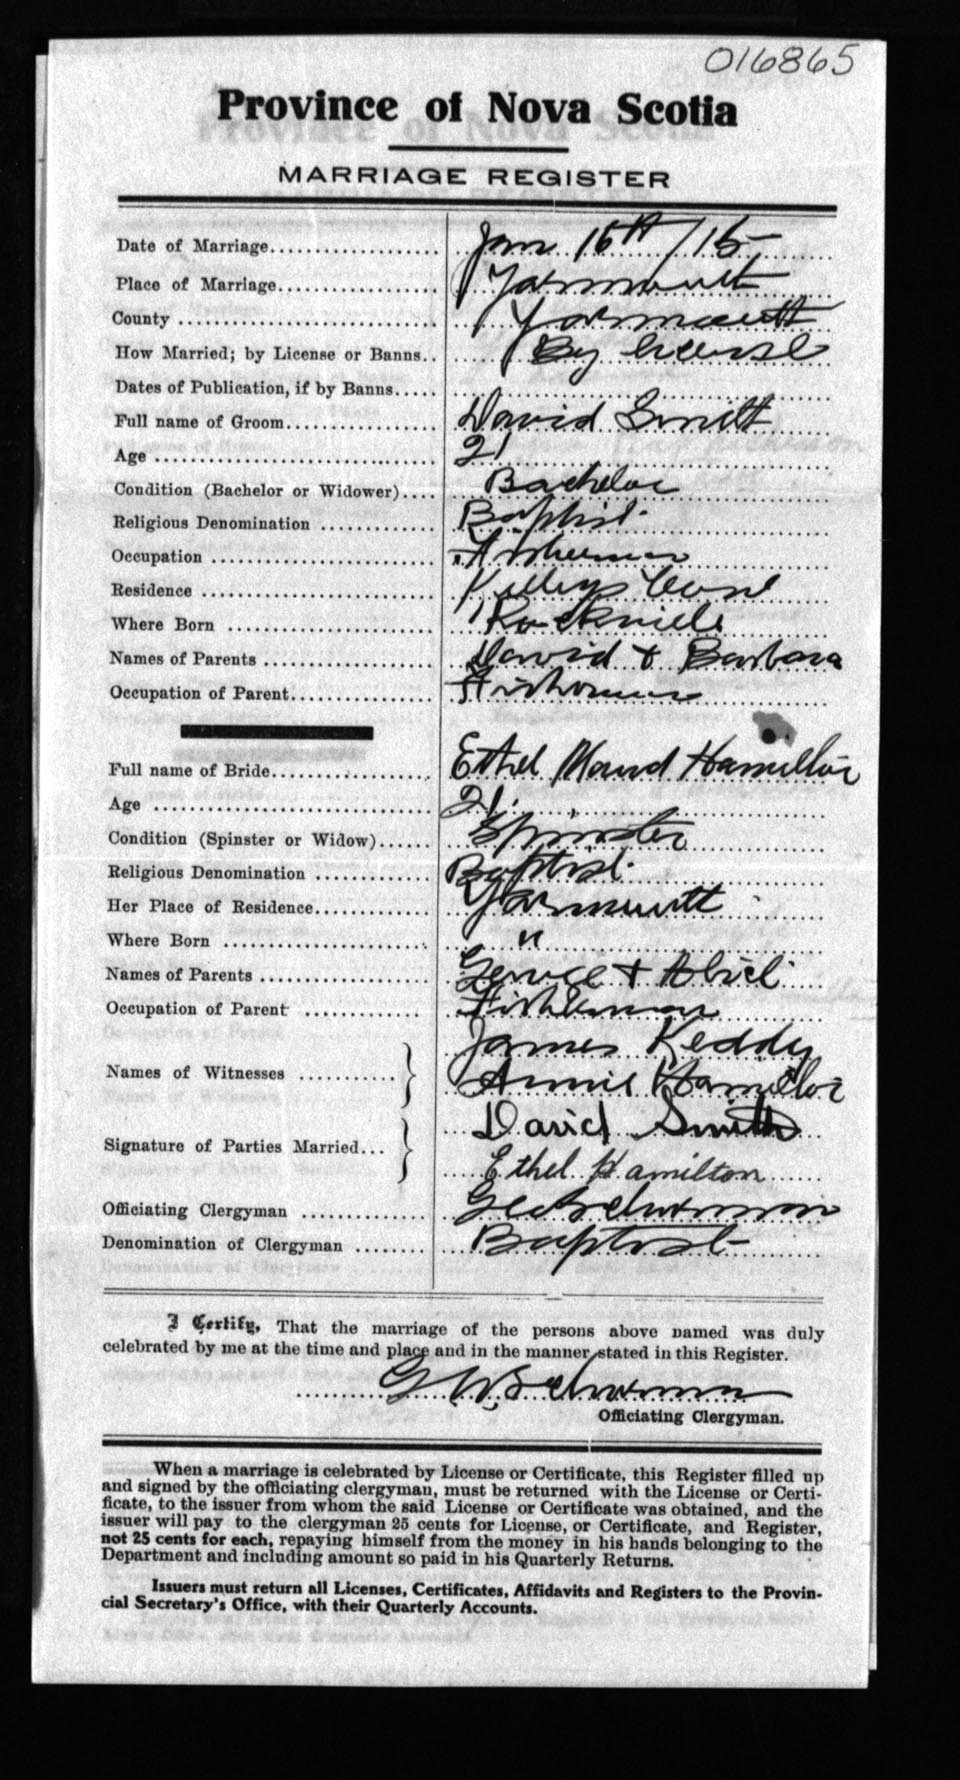 016865
Province of Nova Scotia
MARRIAGE REGISTER
Date of Marriage Jan 16th /15
Place of Marriage Yarmouth
County Yarmouth
How Married; by License or Banns By license
Dates of Publication, if by Banns
Full name of Groom David Smith
Age 21
Condition (Bachelor or Widower) Bachelor
Religious Denomination Baptist
Occupation Fisherman
Residence Kelleys Cove
Where Born Rockville
Names of Parents David & Barbara
Occupation of Parent Fisherman
Full name of Bride Ethel Maud Hamilton
Age 21
Condition (Spinster or Widow) Spinster
Religious Denomination Baptist
Her Place of Residence Yarmouth
Where Born "
Names of Parents George &
Occupation of Parent Fisherman
Names of Witnesses James Keddy
Annie Hamilton
Signature of Parties Married David Smith
Ethel Hamilton
Officiating Clergyman
Denomination of Clergyman Baptist
I Certify, That the marriage of the persons above named was duly
celebrated by me at the time and place and in the manner stated in this Register.
G W Schurman
Officiating Clergyman.
When a marriage is celebrated by License or Certificate, this Register filled up
and signed by the officiating clergyman, must be returned with the License or Certi-
ficate, to the issuer from whom the said License or Certificate was obtained, and the
issuer will pay to the clergyman 25 cents for License, or Certificate, and Register,
not 25 cents for each, repaying himself from the money in his hands belonging to the
Department and including amount so paid in his Quarterly Returns.
Issuers must return all Licenses, Certificates, Affidavits and Registers to the Provin-
cial Secretary's Office, with their Quarterly Accounts.